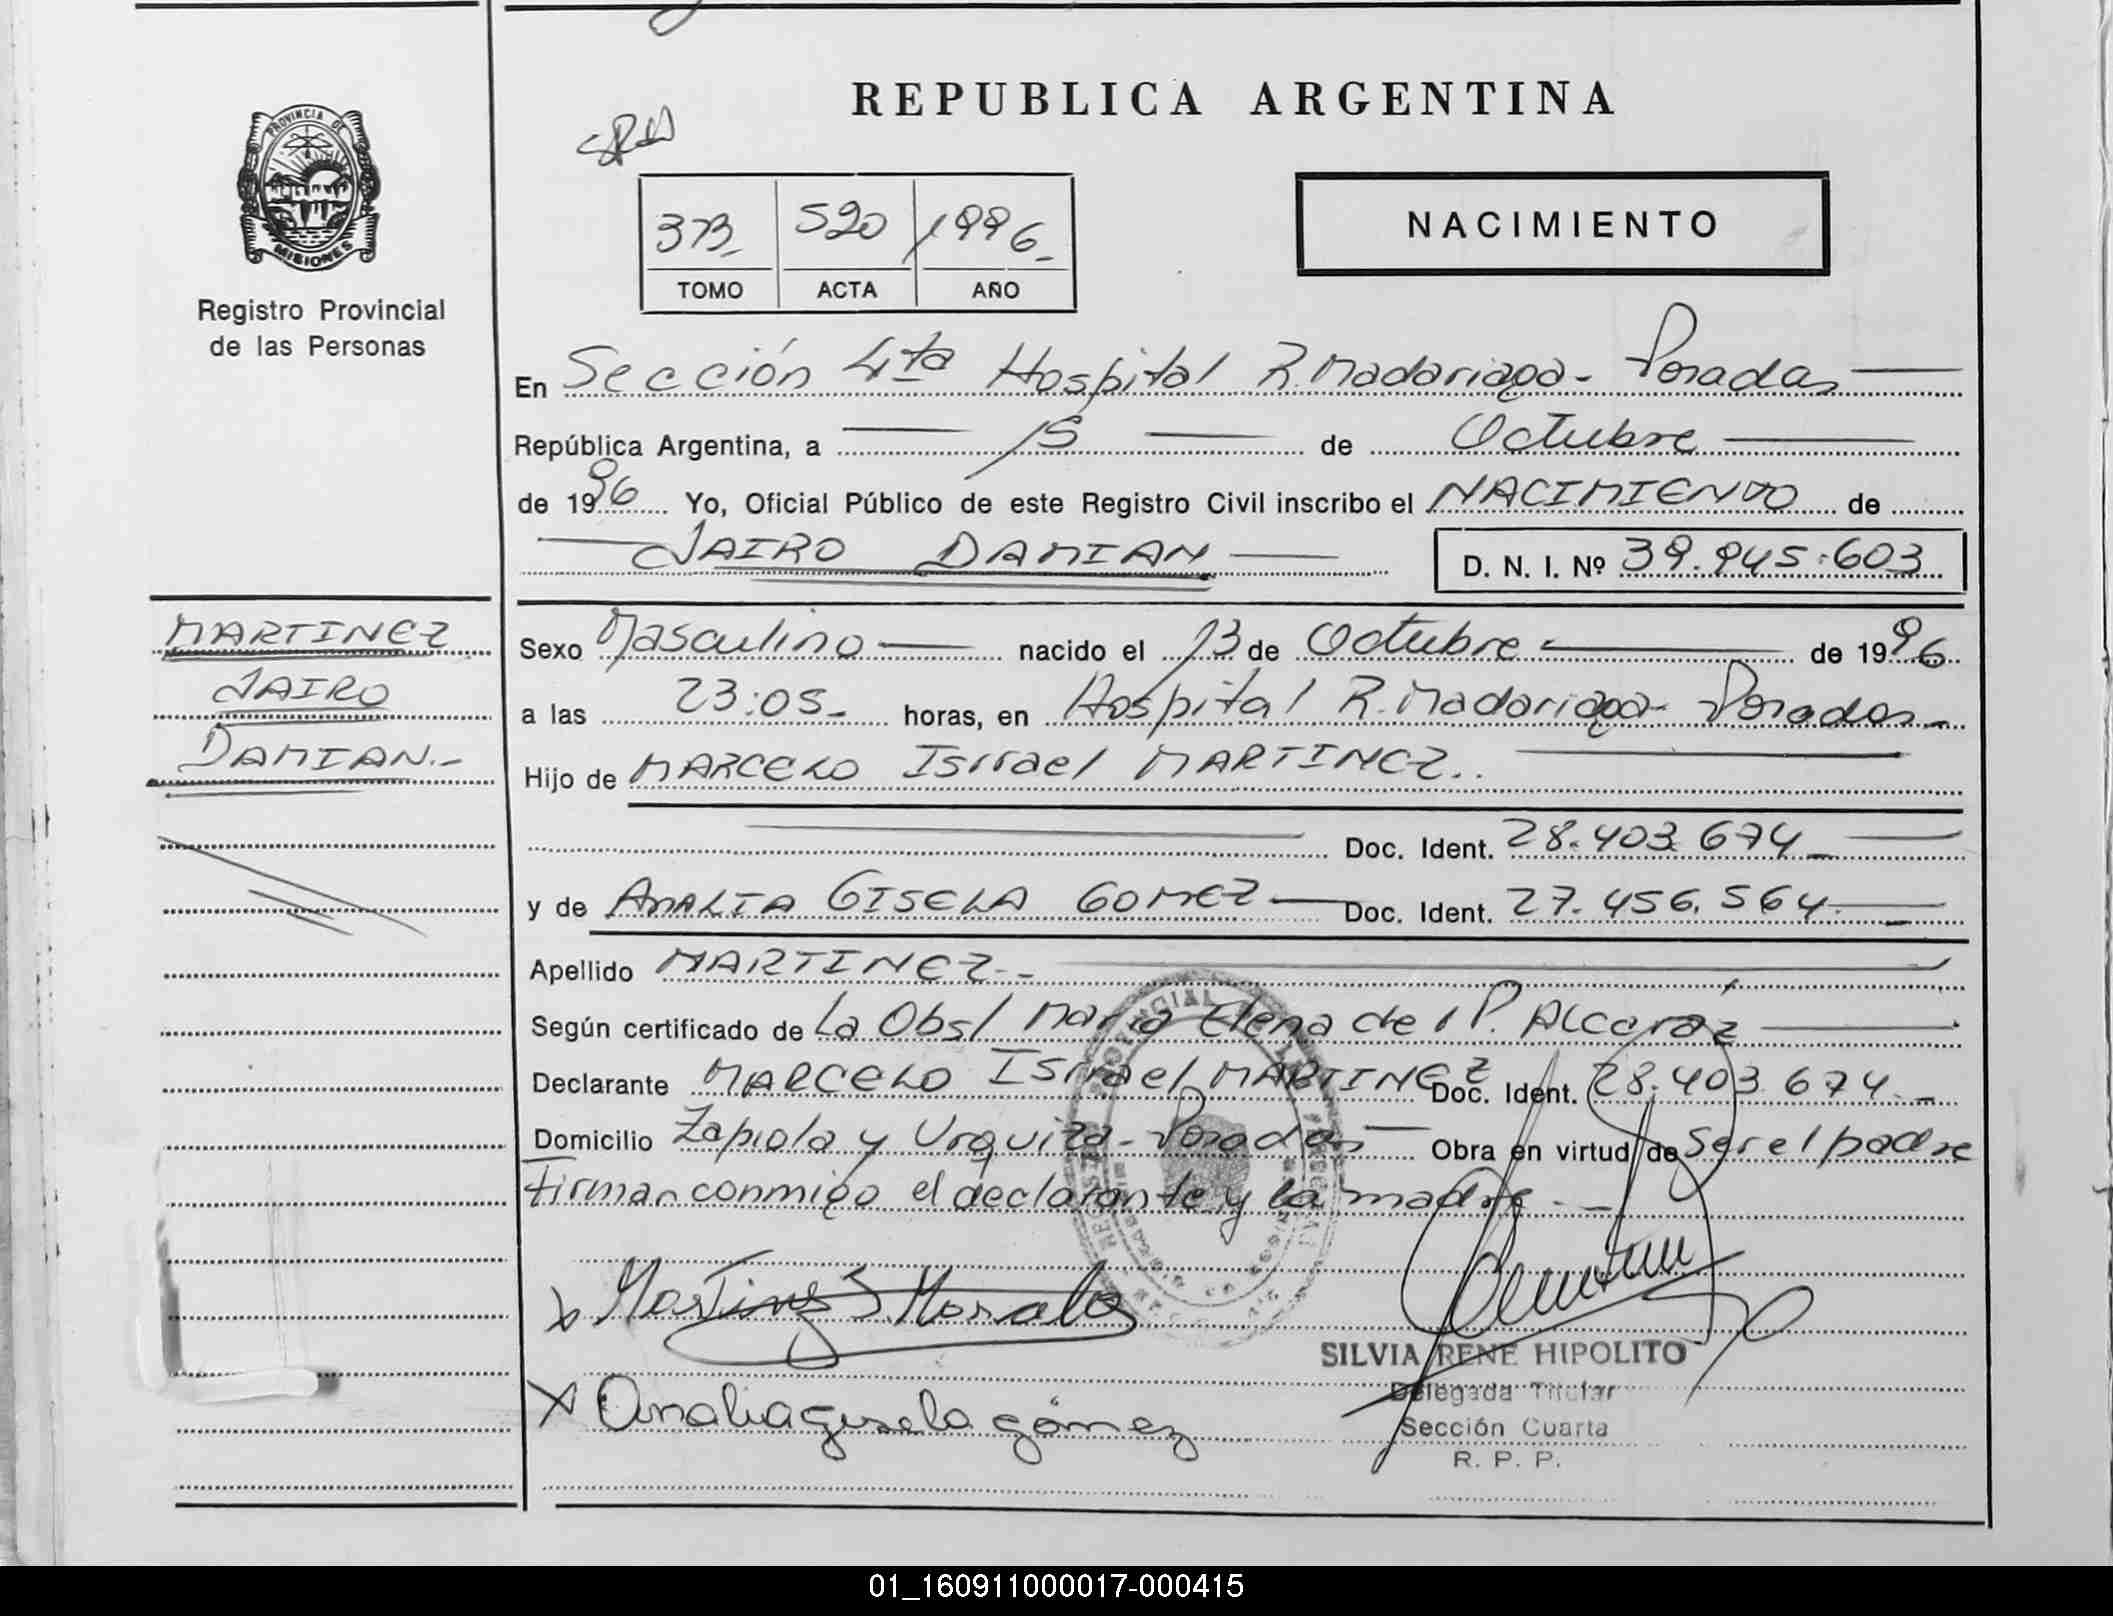 REPUBLICA ARGENTINA
PROVINCIA DE
MISIONES
Registro Provincial
de las Personas
373 520 1996
TOMO ACTA AÑO
NACIMIENTO
En Sección 4ta Hospital R. Madariaga - Posadas
República Argentina, a 15 de Octubre
de 1996 Yo, Oficial Público de este Registro Civil inscribo el NACIMIENTO de
JAIRO DAMIAN D. N. I. Nº 39.945.603
MARTINEZ
JAIRO
DAMIAN.-
Sexo Masculino nacido el 13 de Octubre de 1996
a las 23:05 horas, en Hospital R. Madariaga - Posadas
Hijo de MARCELO Isrrael MARTINEZ..
Doc. Ident. 28.403.674
y de ANALIA GISELA GOMEZ Doc. Ident. 27.456.564
Apellido MARTINEZ.-
Según certificado de La Obst María Elena del P. Alcaráz
Declarante MARCELO Isrrael MARTINEZ Doc. Ident. 28.403.674.-
Domicilio Zapiola y Urquiza - Posadas Obra en virtud de Ser el padre
Firman conmigo el declarante y la madre.-
x
x Analia gisela gómez
SILVIA RENE HIPOLITO
Delegada Titular
Sección Cuarta
R. P. P.
01_160911000017-000415